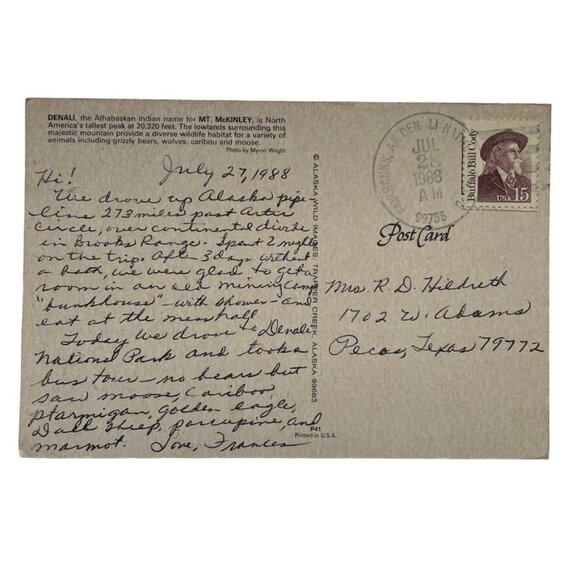 DENALI, the Athabaskan Indian name for MT. McKINLEY, is North
America's tallest peak at 20,320 feet. The lowlands surrounding this
majestic mountain provide a diverse wildlife habitat for a variety of
animals including grizzly bears, wolves, caribou and moose.
Photo by Myron Wright
July 27, 1988
Hi!
We drove up Alaska pipe-
line 273 miles past Artic
Circle, over continental divide
in Brooks Range. Spent 2 nights
on the trip. After 3 days without
a bath, we were glad to get a
room in an old mining camp
"bunkhouse" – with shower – and
eat at the messhall.
Today we drove to Denali
National Park and took a
bus tour – no bears but
saw moose, cariboo,
ptarmigan, golden eagle,
Dall sheep, porcupine, and
marmot. Love, Frances
© ALASKA WILD IMAGES TRAPPER CREEK, ALASKA 99683
P41
Printed in U.S.A.
JUL
1988
AM
99755
Buffalo Bill Cody
USA 15
Post Card
Mrs. R. D. Hildreth
1702 W. Adams
Pecos, Texas 79772